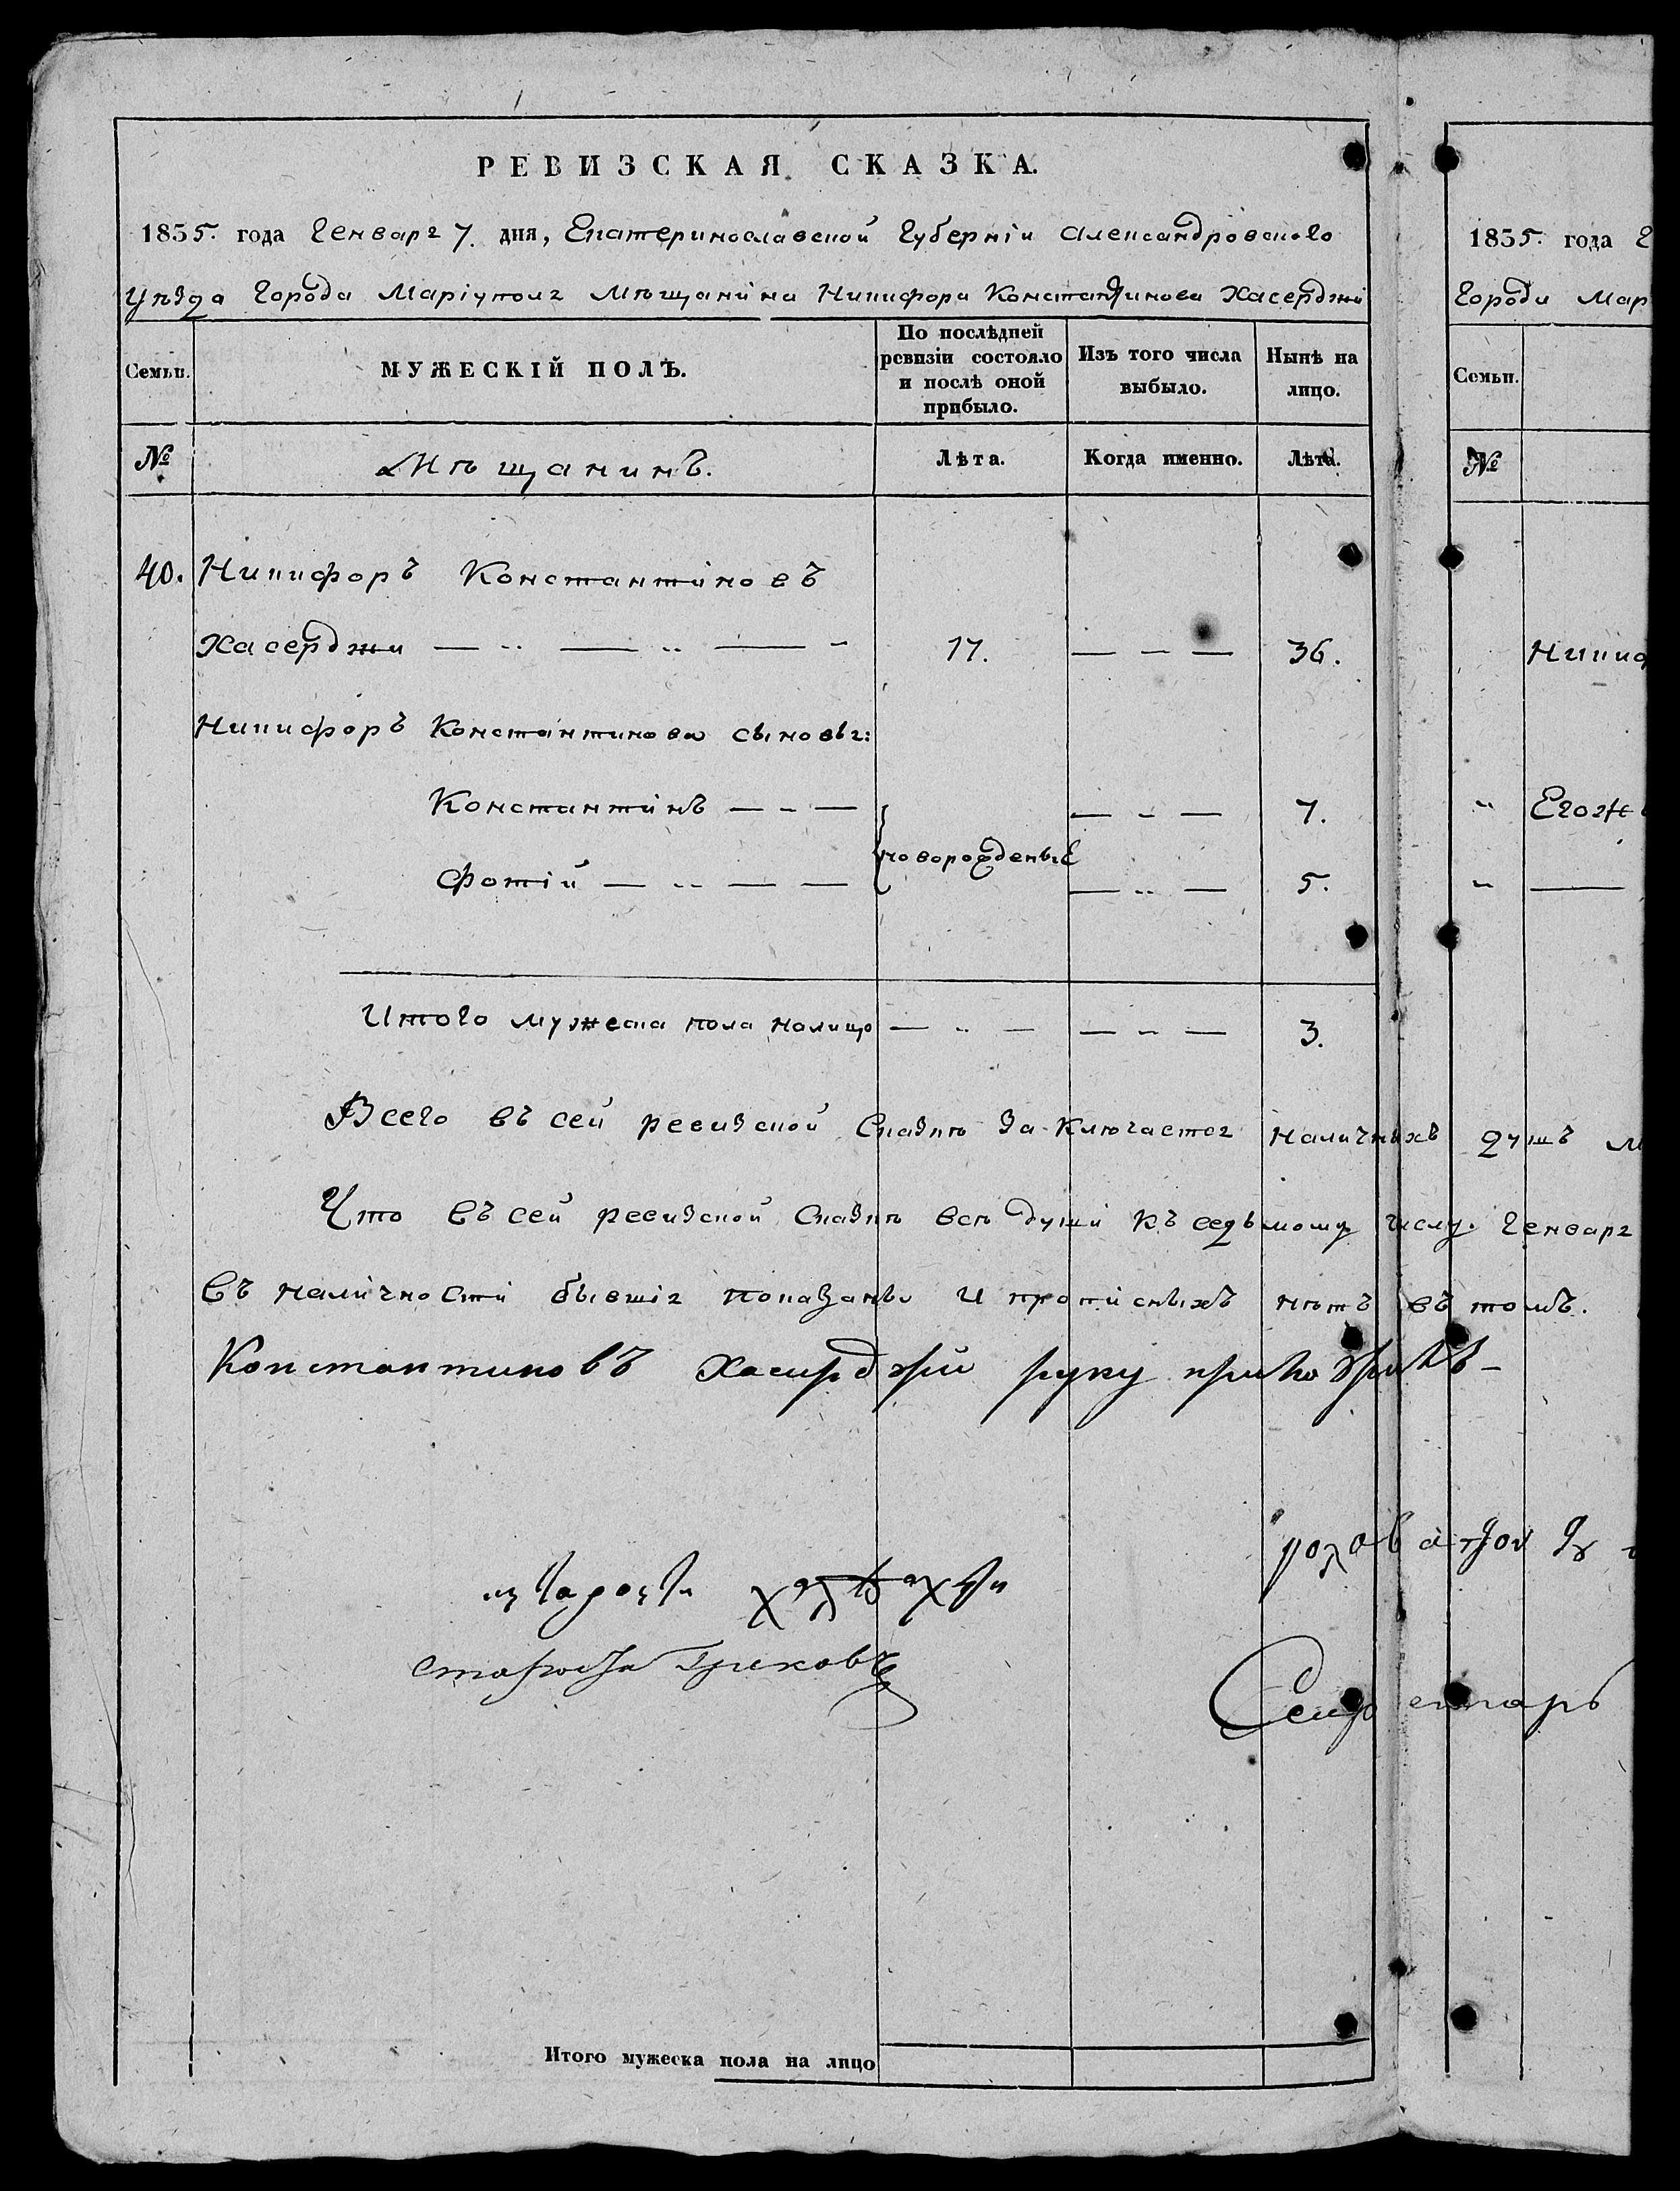 РЕВИЗСКАЯ СКАЗКА.
1835. года Генваря 7. дня, Екатеринославской Губерніи Александровского
Уѣзда Города Маріуполя Мѣщанина Никифора Константинова Хасерджи
Семьи.
МУЖЕСКІЙ ПОЛЪ.
По послѣдней ревизіи состояло и послѣ оной прибыло.
Изъ того числа выбыло.
Нынѣ на лицо.
№
Мѣщанинъ.
Лѣта.
Когда именно.
Лѣта.
40. Никифоръ Константиновъ
Хасерджи — „ — „ — 17. — — — 36.
Никифоръ Константинова сыновья:
Константинъ — - — — - — 7.
новорожденые
Фотій — „ — — — „ — 5.
Итого мужеска пола налицо — „ — — „ — 3.
Всего въ сей ревизской Сказкѣ заключается наличныхъ душъ м
Что въ сей ревизской Сказкѣ всѣ души къ седьмому числу Генваря
въ наличности бывшія показаны и прописныхъ нѣтъ въ томъ.
Константиновъ Хасирджи руку приложилъ —
староста Грековъ
Секретарь
Итого мужеска пола на лицо
1835. года Г
Города Мар
Семьи.
№
Никиф
„ Его ж
„ —